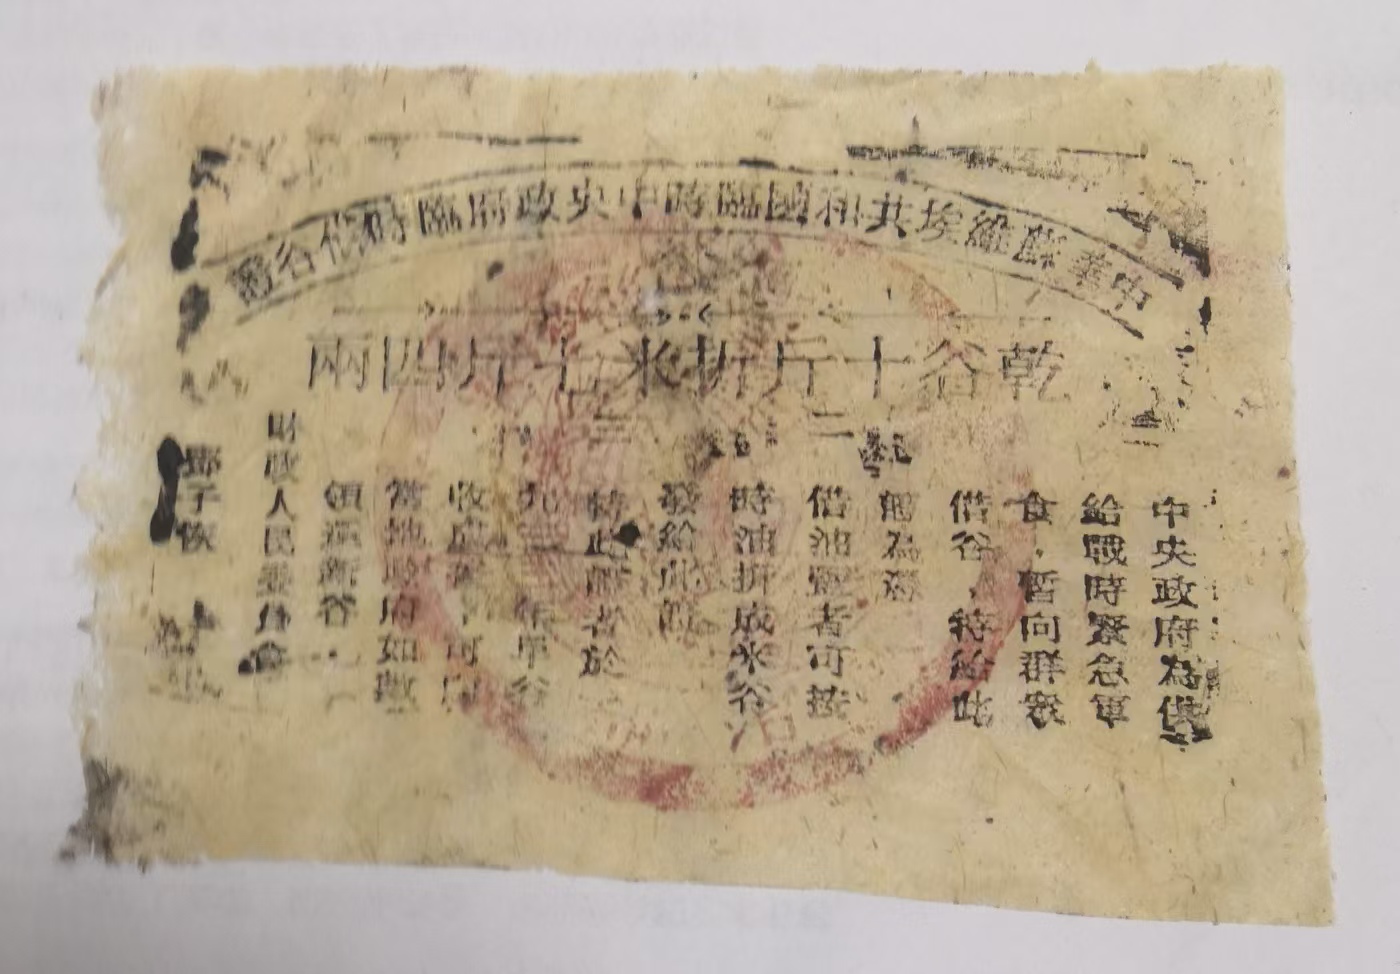 中華蘇維埃共和國臨時中央政府臨時借谷證
乾谷十斤折米七斤四兩
中央政府為供
給戰時緊急軍
食，暫向群衆
借谷，特給此
為憑
二
借油鹽者可按
時油折成米谷
發給此
三
特此
者於
年早谷
收成
可向
當地政府如數
領還新谷
財政人民委員會
鄧子恢